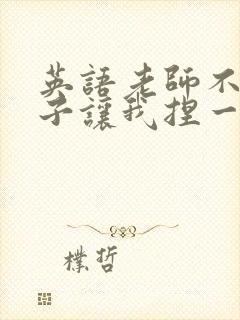 英語老師不
子讓我捏一
樸哲